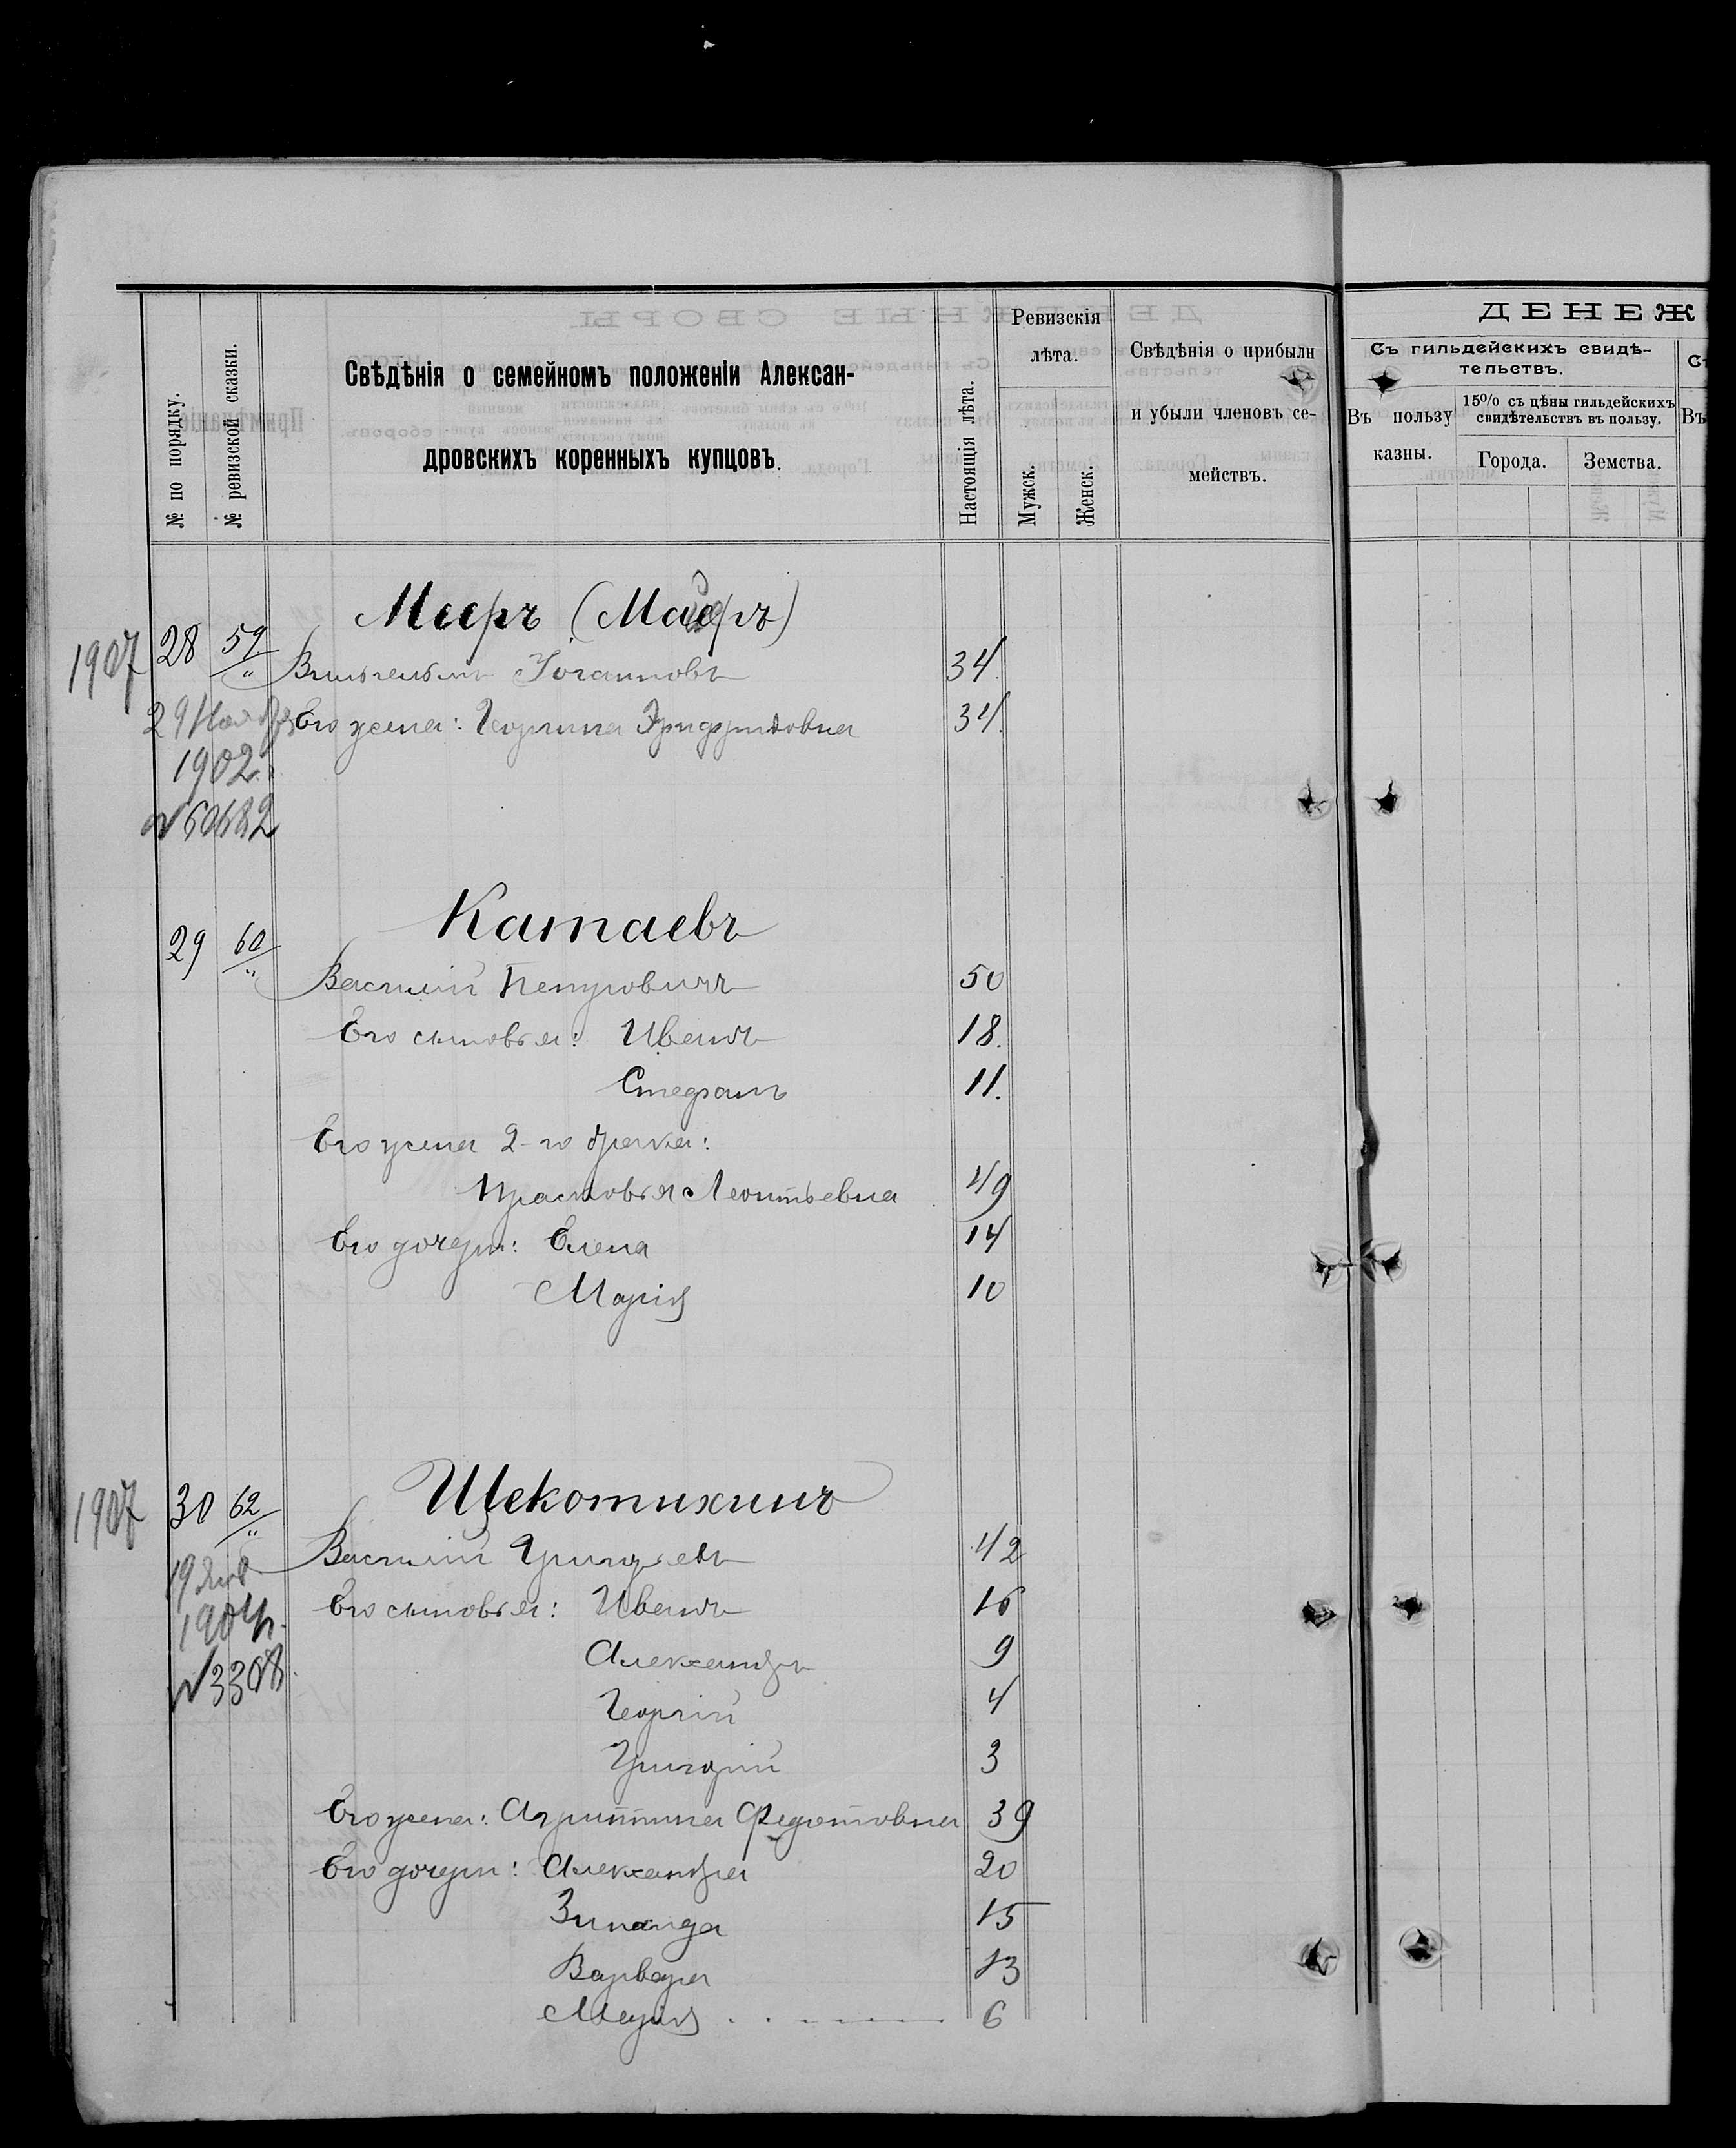 № по порядку.
№ ревизской сказки.
Свѣдѣнія о семейномъ положеніи Алексан-
дровскихъ коренныхъ купцовъ.
Настоящія лѣта.
Ревизскія
лѣта.
Мужск.
Женск.
Свѣдѣнія о прибыли
и убыли членовъ се-
мействъ.
ДЕНЕЖ
Съ гильдейскихъ свидѣ-
тельствъ.
Въ пользу
казны.
15% съ цѣны гильдейскихъ
свидѣтельствъ въ пользу.
Города.
Земства.
Въ
Мееръ (Маеръ)
1907 28 59 "
Вильгельмъ Іоганновъ 34.
29 Ноября Его жена: Георгина 34.
1902 г.
№ 60682
Катаевъ
29 60 "
Василій Петровичъ 50
Его сыновья: Иванъ 18.
Стефанъ 11.
Его жена 2-го брака:
Прасковья Леонтьевна 49
Его дочери: Елена 14
Марія 10
Щекотихинъ
1907 30 62 "
Василій Григорьевъ 42
19 Янв.
Его сыновья: Иванъ 16
1904 г.
Александръ 9
№ 3308.
Георгій 4
Григорій 3
Его жена: Агриппина Федотовна 39
Его дочери: Александра 20
Зинаида 15
Варвара 13
Марія 6